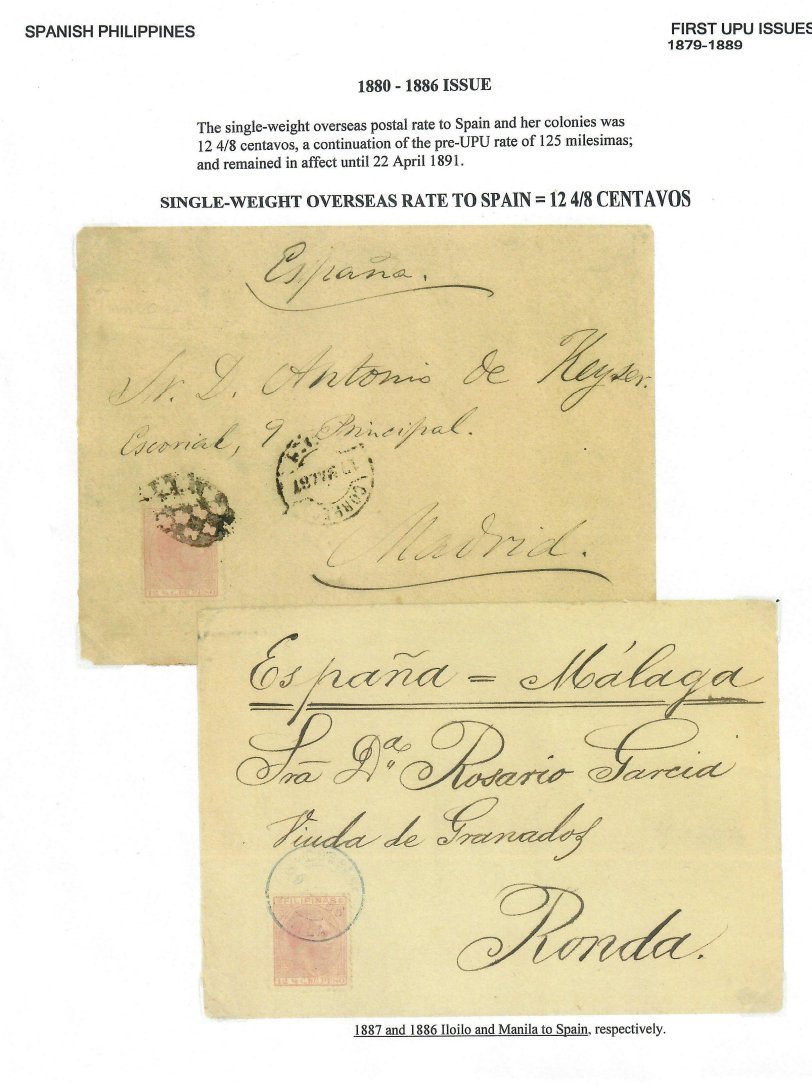 SPANISH PHILIPPINES
FIRST UPU ISSUES
1879-1889
1880 - 1886 ISSUE
The single-weight overseas postal rate to Spain and her colonies was
12 4/8 centavos, a continuation of the pre-UPU rate of 125 milesimas;
and remained in affect until 22 April 1891.
SINGLE-WEIGHT OVERSEAS RATE TO SPAIN = 12 4/8 CENTAVOS
España.
Sr. D. Antonio de Keyser.
Escorial, 9 Principal.
MAY.87
CORRE
Madrid.
España = Málaga
Srã Dª Rosario Garcia
Viuda de Granados
FILIPINAS
Ronda.
1887 and 1886 Iloilo and Manila to Spain, respectively.